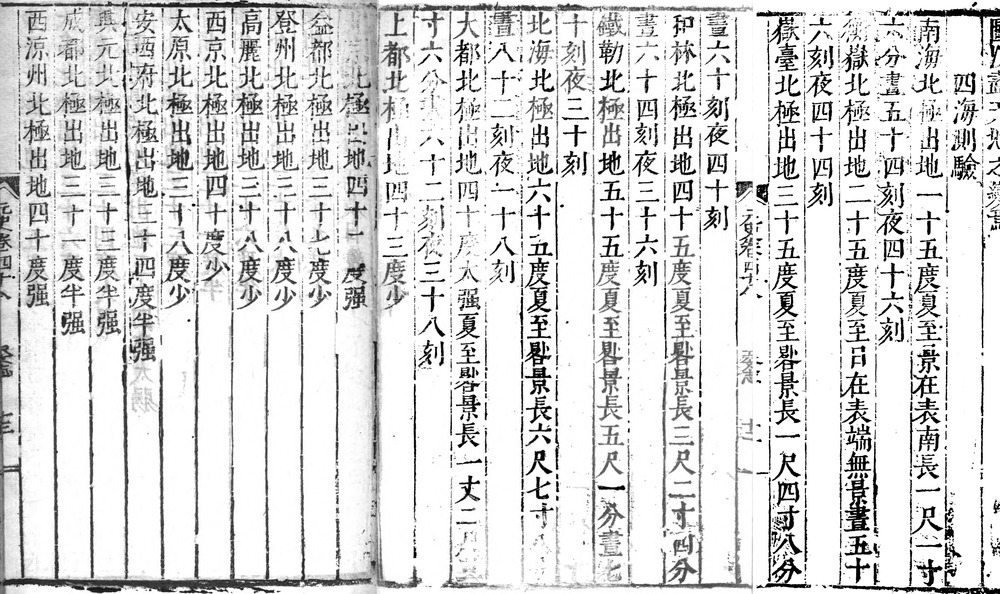 四海測驗
南海北極出地一十五度夏至景在表南長一尺一寸
六分晝五十四刻夜四十六刻
衡嶽北極出地二十五度夏至日在表端無景晝五十
六刻夜四十四刻
嶽臺北極出地三十五度夏至晷景長一尺四寸八分
晝六十刻夜四十刻
和林北極出地四十五度夏至晷景長三尺二寸四分
晝六十四刻夜三十六刻
鐵勒北極出地五十五度夏至晷景長五尺一分晝七
十刻夜三十刻
北海北極出地六十五度夏至晷景長六尺七寸
晝八十二刻夜一十八刻
大都北極出地四十度太强夏至晷景長一丈二尺
寸六分晝六十二刻夜三十八刻
上都北極出地四十三度少
京北極出地四十二度强
益都北極出地三十七度少
登州北極出地三十八度少
高麗北極出地三十八度少
西京北極出地四十度少
太原北極出地三十八度少
安西府北極出地三十四度半强
興元北極出地三十三度半强
成都北極出地三十一度半强
西涼州北極出地四十度强